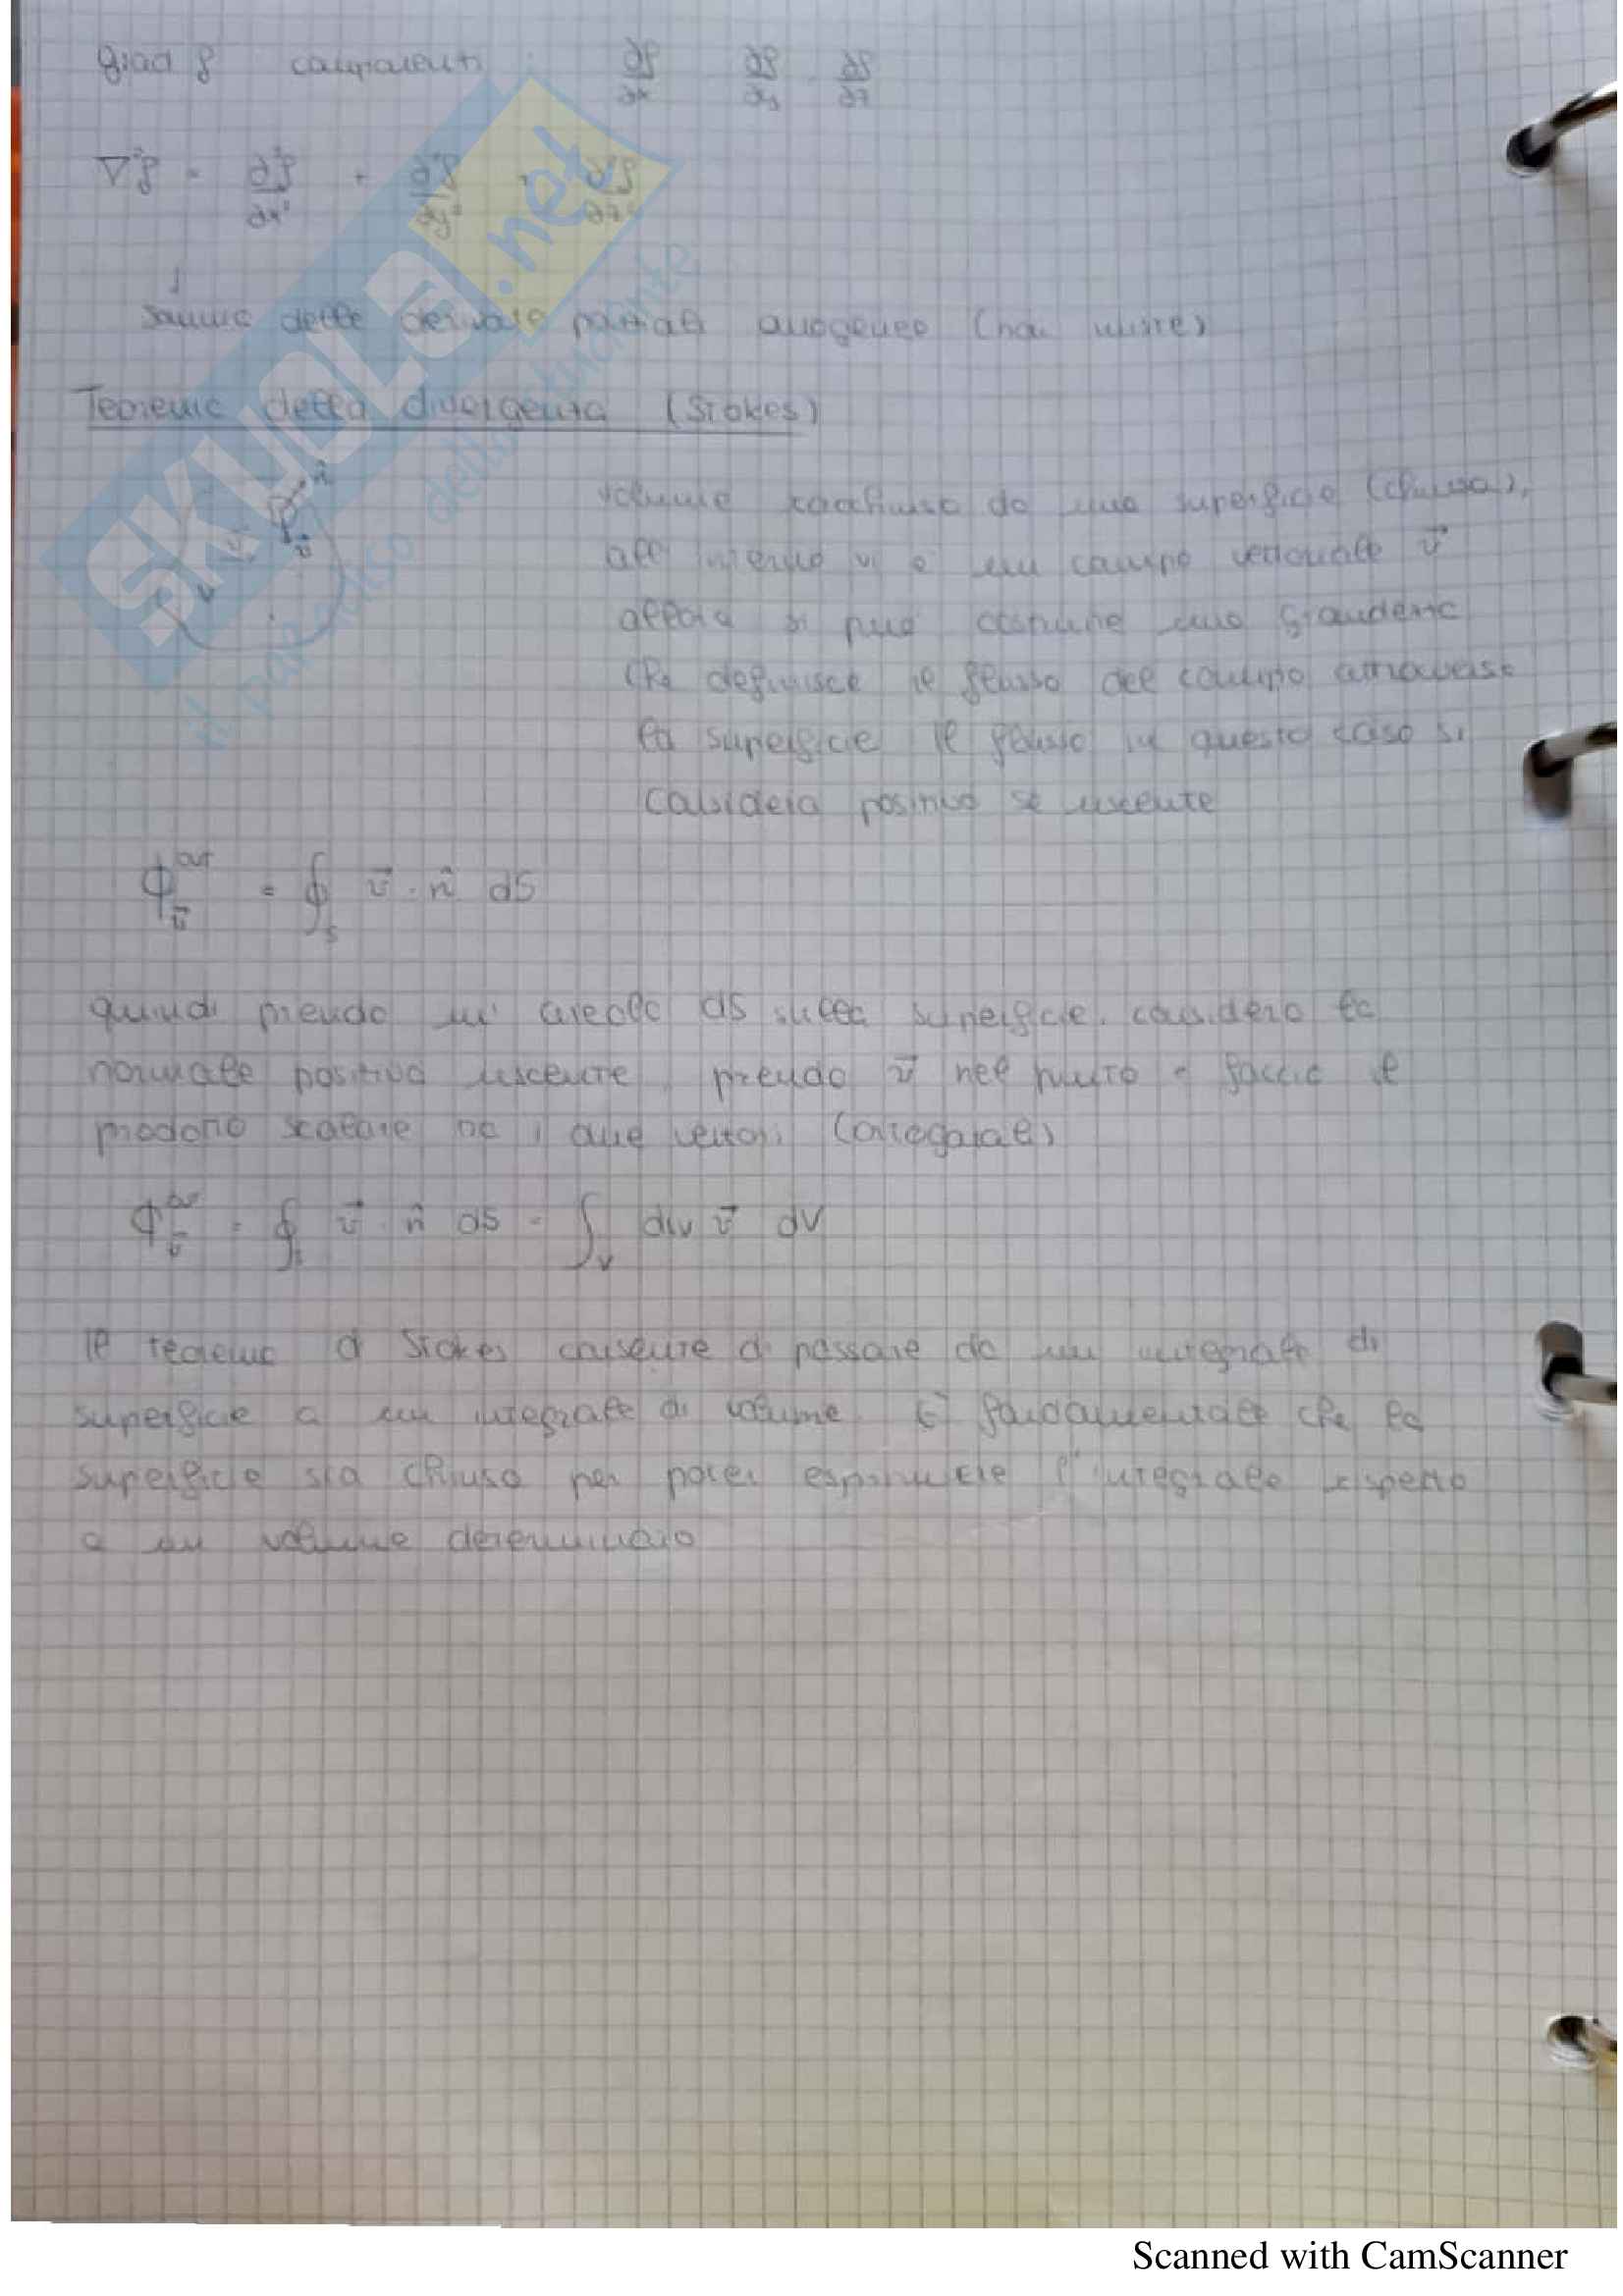 grad f componenti : ∂f/∂x ∂f/∂y ∂f/∂z
∇²f = ∂²f/∂x² + ∂²f/∂y² + ∂²f/∂z²
↓
somma delle derivate parziali omogenee (non miste)
Teorema della divergenza (Stokes)
n̂
v⃗
V
volume racchiuso da una superficie (chiusa),
all'interno vi è un campo vettoriale v⃗
allora si può costruire una grandezza
che definisce il flusso del campo attraverso
la superficie il flusso in questo caso si
considera positivo se uscente
Φ_v⃗^out = ∮_S v⃗ · n̂ dS
quindi prendo un' areola dS sulla superficie, considero la
normale positiva uscente, prendo v⃗ nel punto e faccio il
prodotto scalare tra i due vettori
Φ_v⃗^out = ∮_S v⃗ · n̂ dS = ∫_V div v⃗ dV
Il teorema di Stokes consente di passare da un integrale di
superficie a un integrale di volume. È fondamentale che la
superficie sia chiusa per poter esprimere l'integrale rispetto
a un volume determinato
SKUOLA.net
il paradiso dello studente
Scanned with CamScanner